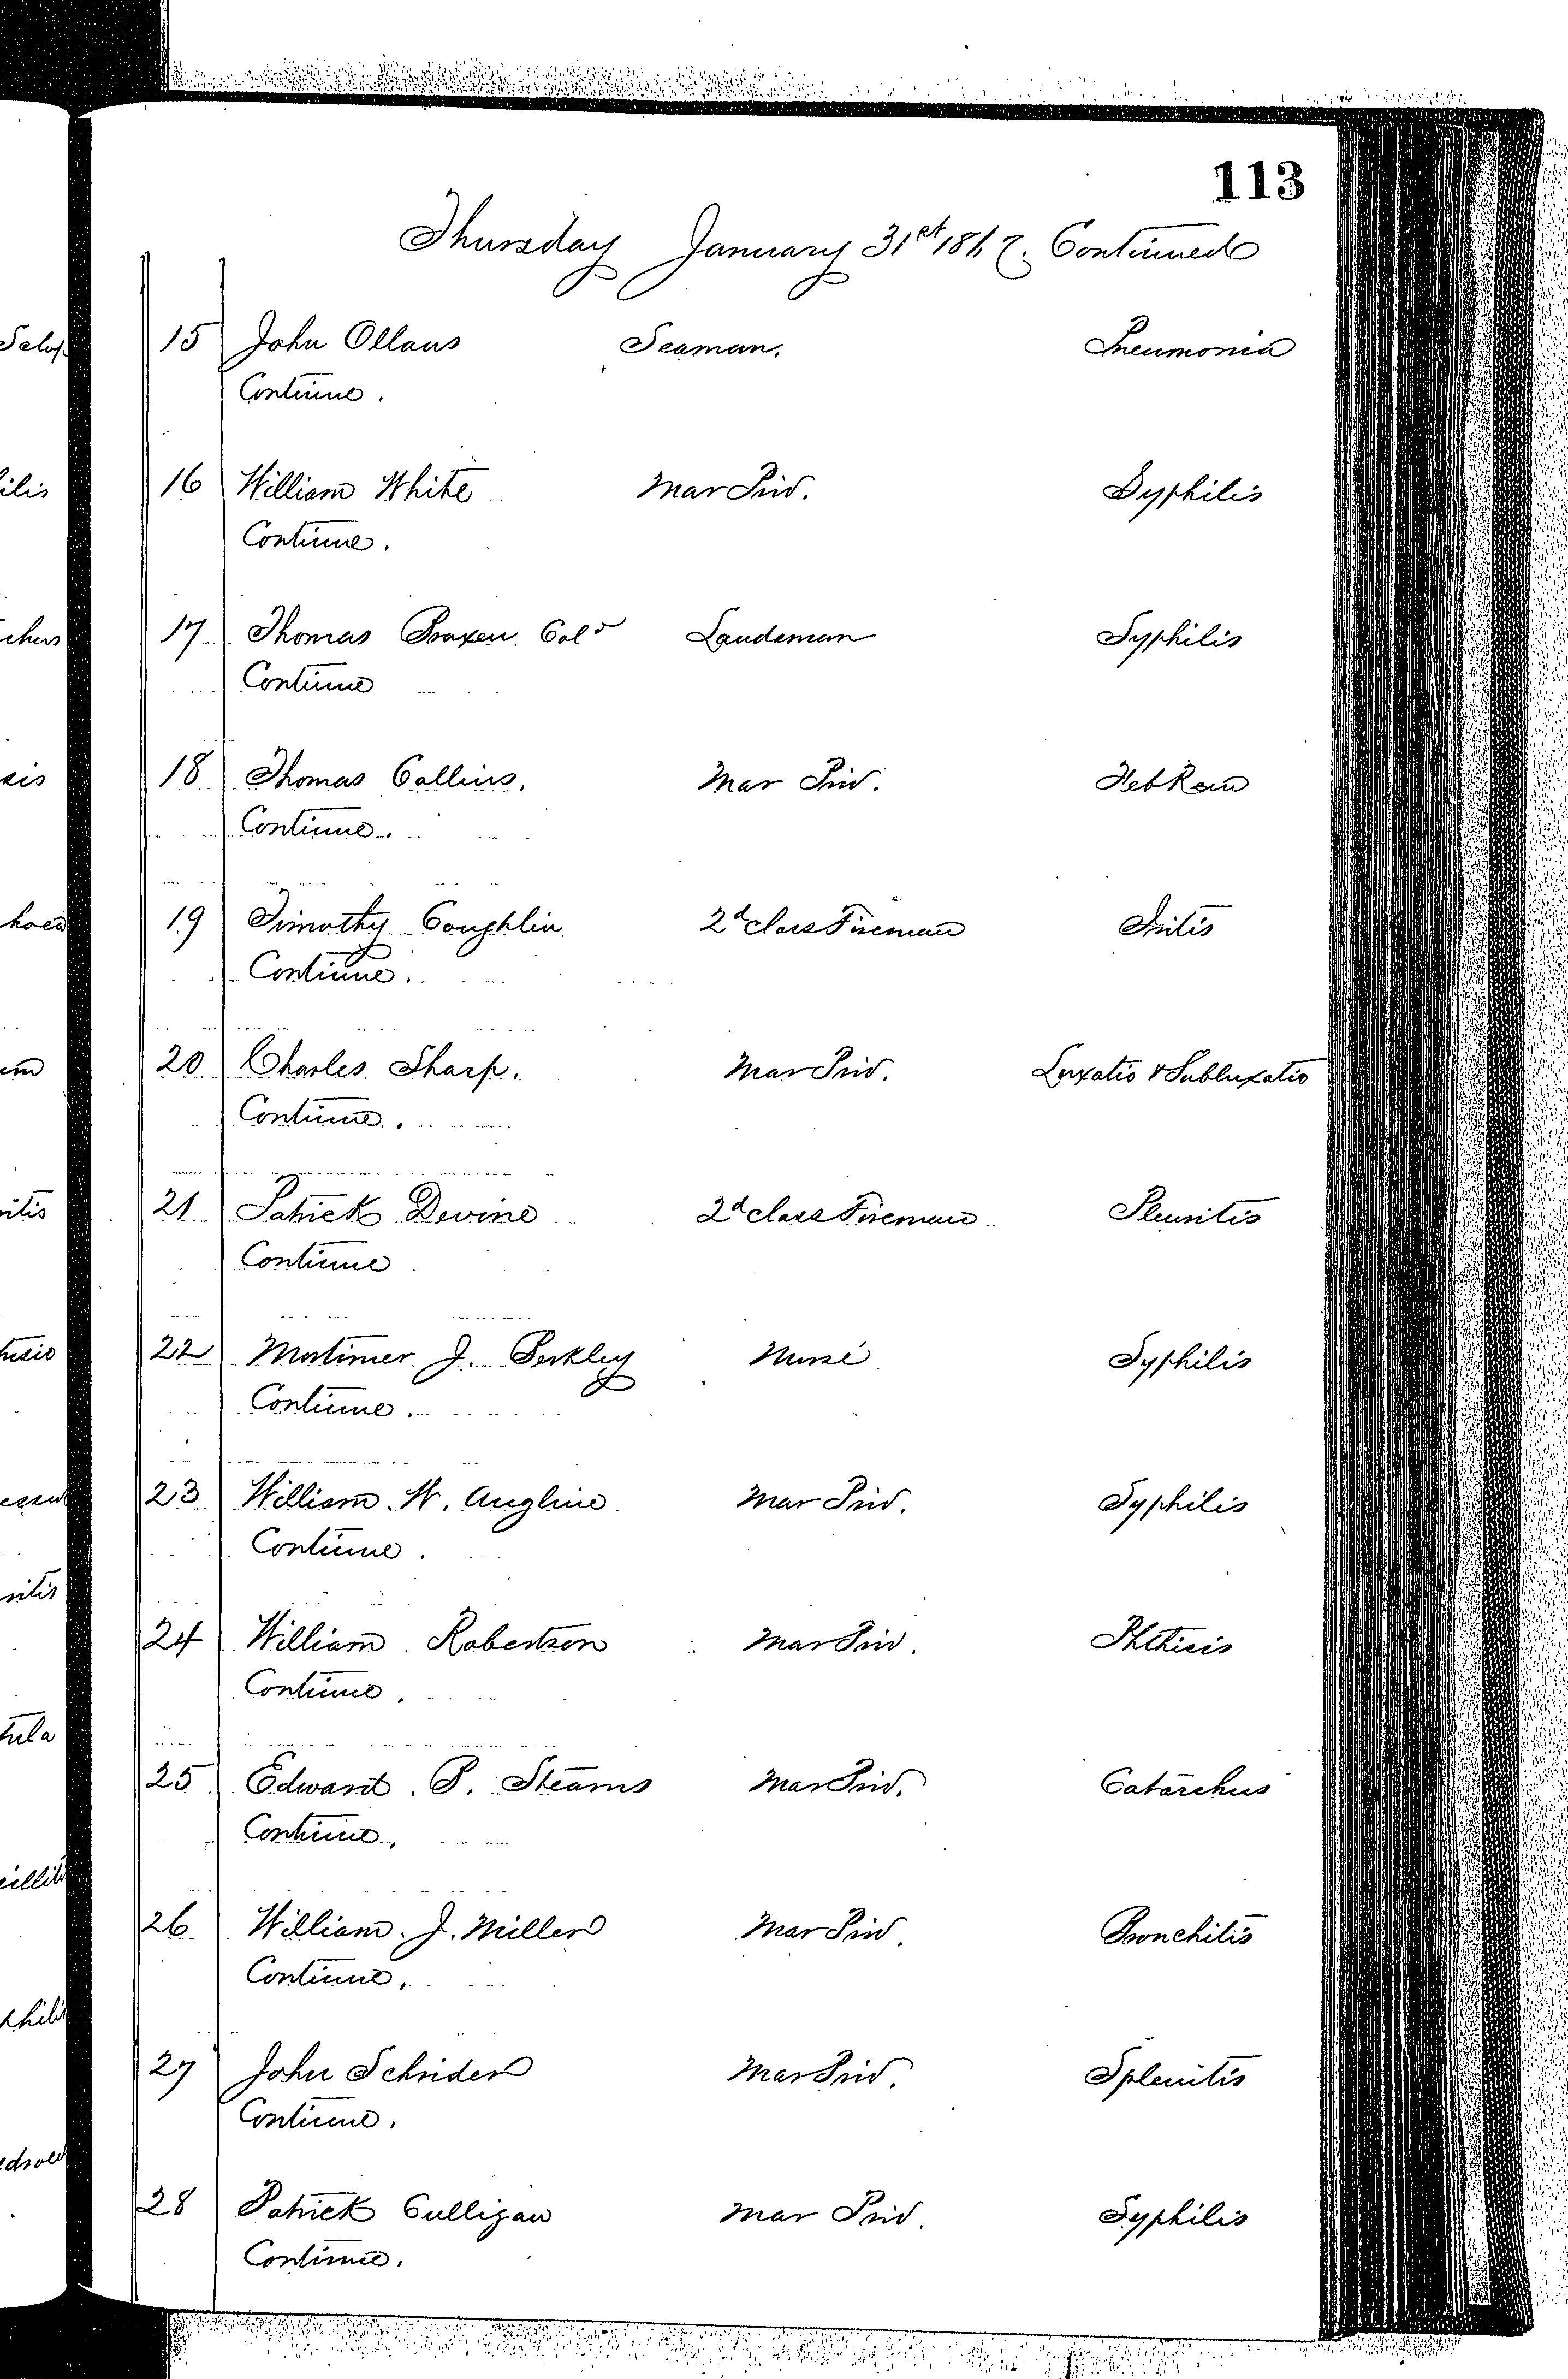 113
Thursday January 31st 1867. Continued
15 John Ollaus Seaman. Pneumonia
Continue.
16 William White Mar Priv. Syphilis
Continue.
17 Thomas Braxen Cold Landsman Syphilis
Continue
18 Thomas Collins. Mar Priv. Feb Rem
Continue.
19 Timothy Coughlin 2d class Fireman Iritis
Continue.
20 Charles Sharp. Mar Priv. Luxatio & Subluxatio
Continue.
21 Patrick Devine 2d class Fireman Pleuritis
Continue
22 Mortimer J. Berkley Nurse Syphilis
Continue.
23 William W. Angline Mar Priv. Syphilis
Continue.
24 William Robertson Mar Priv. Phthisis
Continue.
25 Edward P. Stearns Mar Priv. Catarrhus
Continue.
26 William J. Miller Mar Priv. Bronchitis
Continue.
27 John Schrider Mar Priv. Splenitis
Continue.
28 Patrick Culligan Mar Priv. Syphilis
Continue.